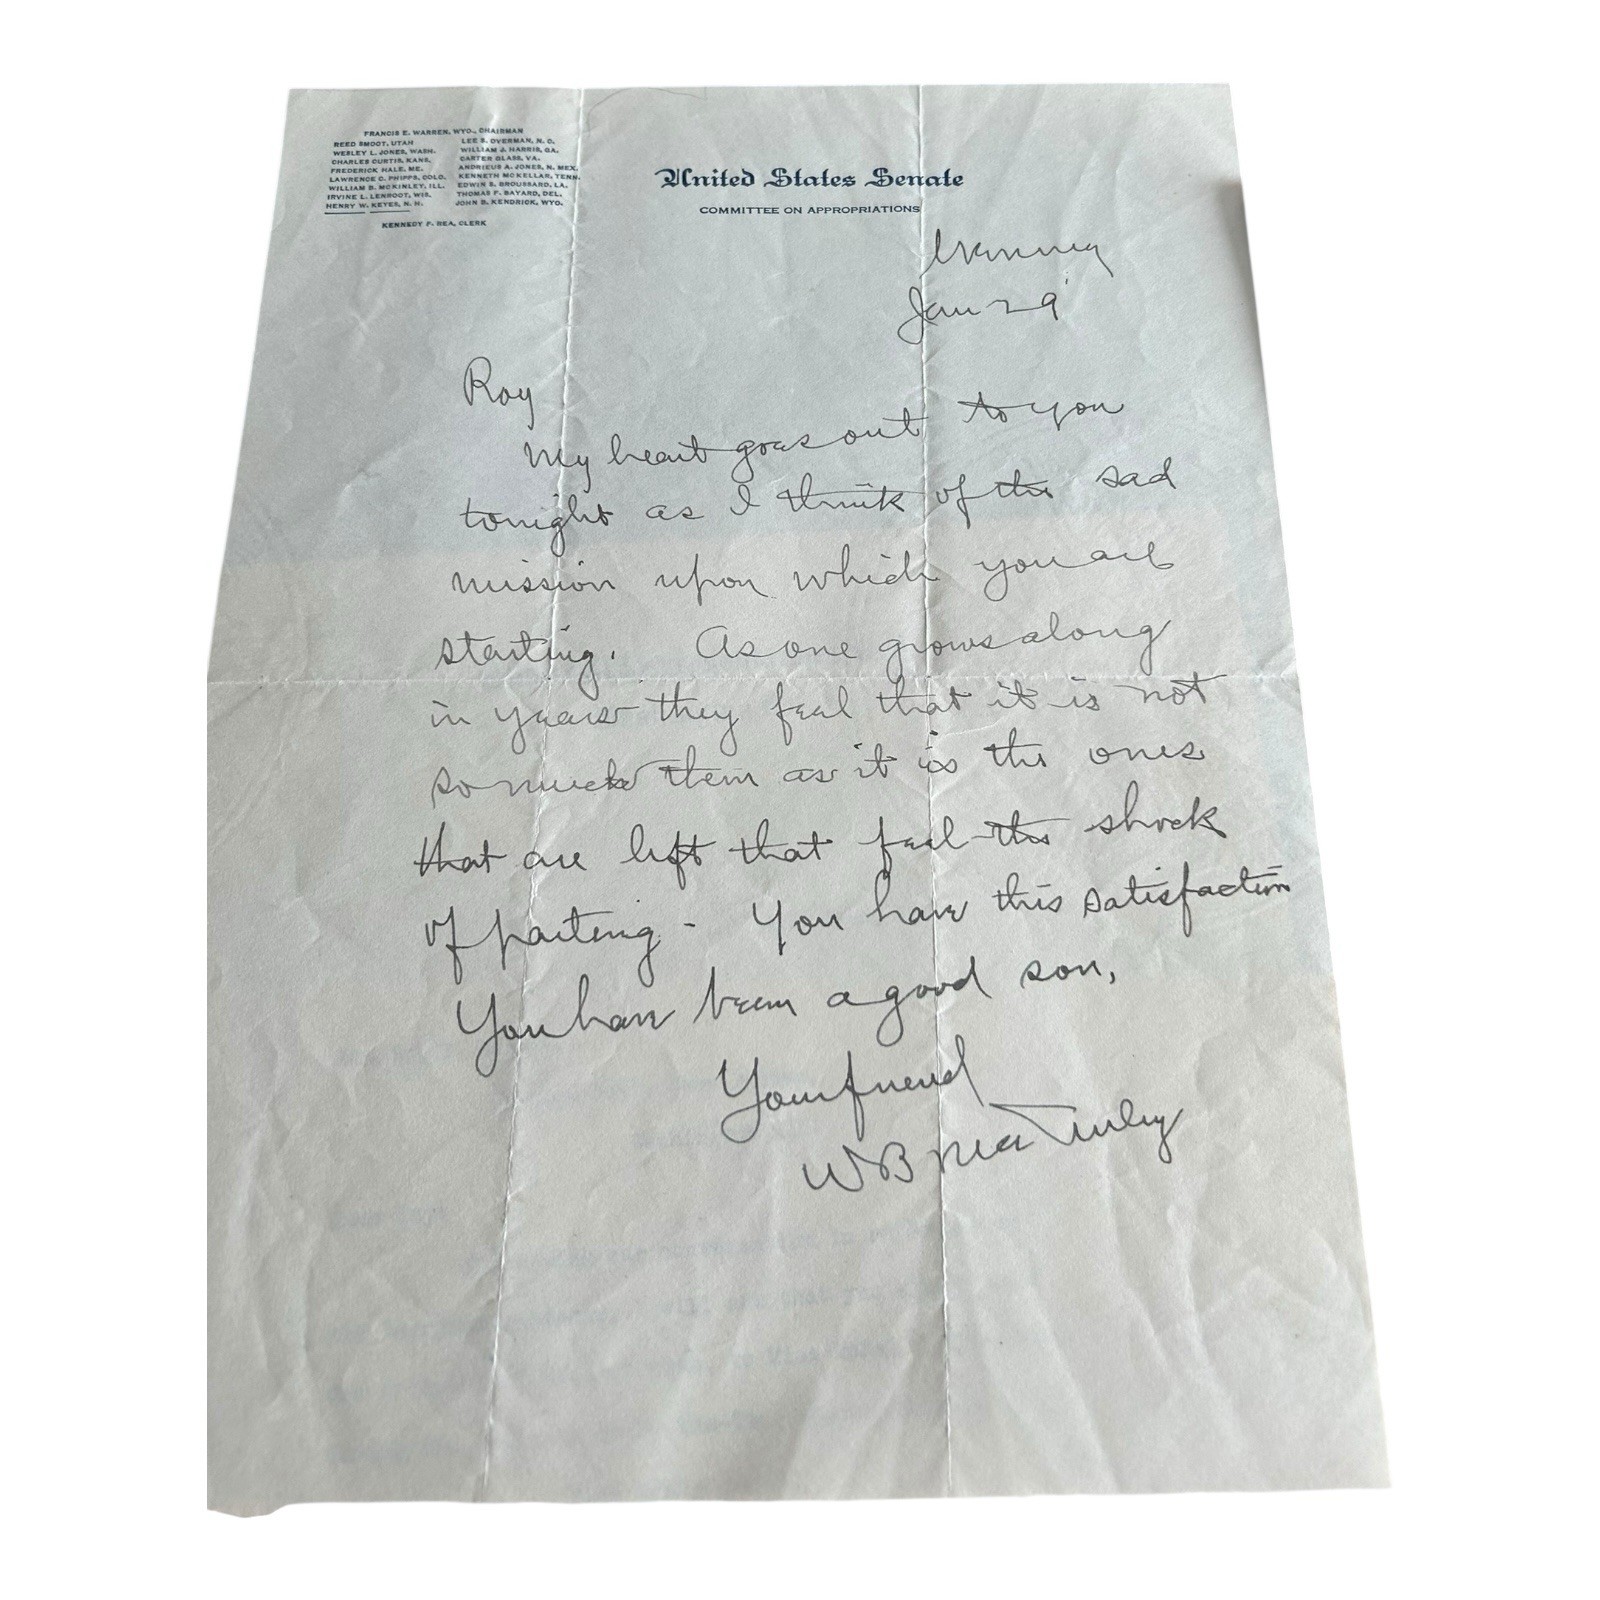 FRANCIS E. WARREN, WYO., CHAIRMAN
REED SMOOT, UTAH LEE S. OVERMAN, N. C.
WESLEY L. JONES, WASH. WILLIAM J. HARRIS, GA.
CHARLES CURTIS, KANS. CARTER GLASS, VA.
FREDERICK HALE, ME. ANDRIEUS A. JONES, N. MEX.
LAWRENCE C. PHIPPS, COLO. KENNETH MCKELLAR, TENN.
WILLIAM B. MCKINLEY, ILL. EDWIN S. BROUSSARD, LA.
IRVINE L. LENROOT, WIS. THOMAS F. BAYARD, DEL.
HENRY W. KEYES, N. H. JOHN B. KENDRICK, WYO.
KENNEDY F. REA, CLERK
United States Senate
COMMITTEE ON APPROPRIATIONS
Evening
Jan 29
Roy
My heart goes out to you
tonight as I think of the sad
mission upon which you are
starting. As one grows along
in years they feel that it is not
so much them as it is the ones
that are left that feel the shock
of parting - You have this satisfaction
You have been a good son,
Your friend
W B McKinley